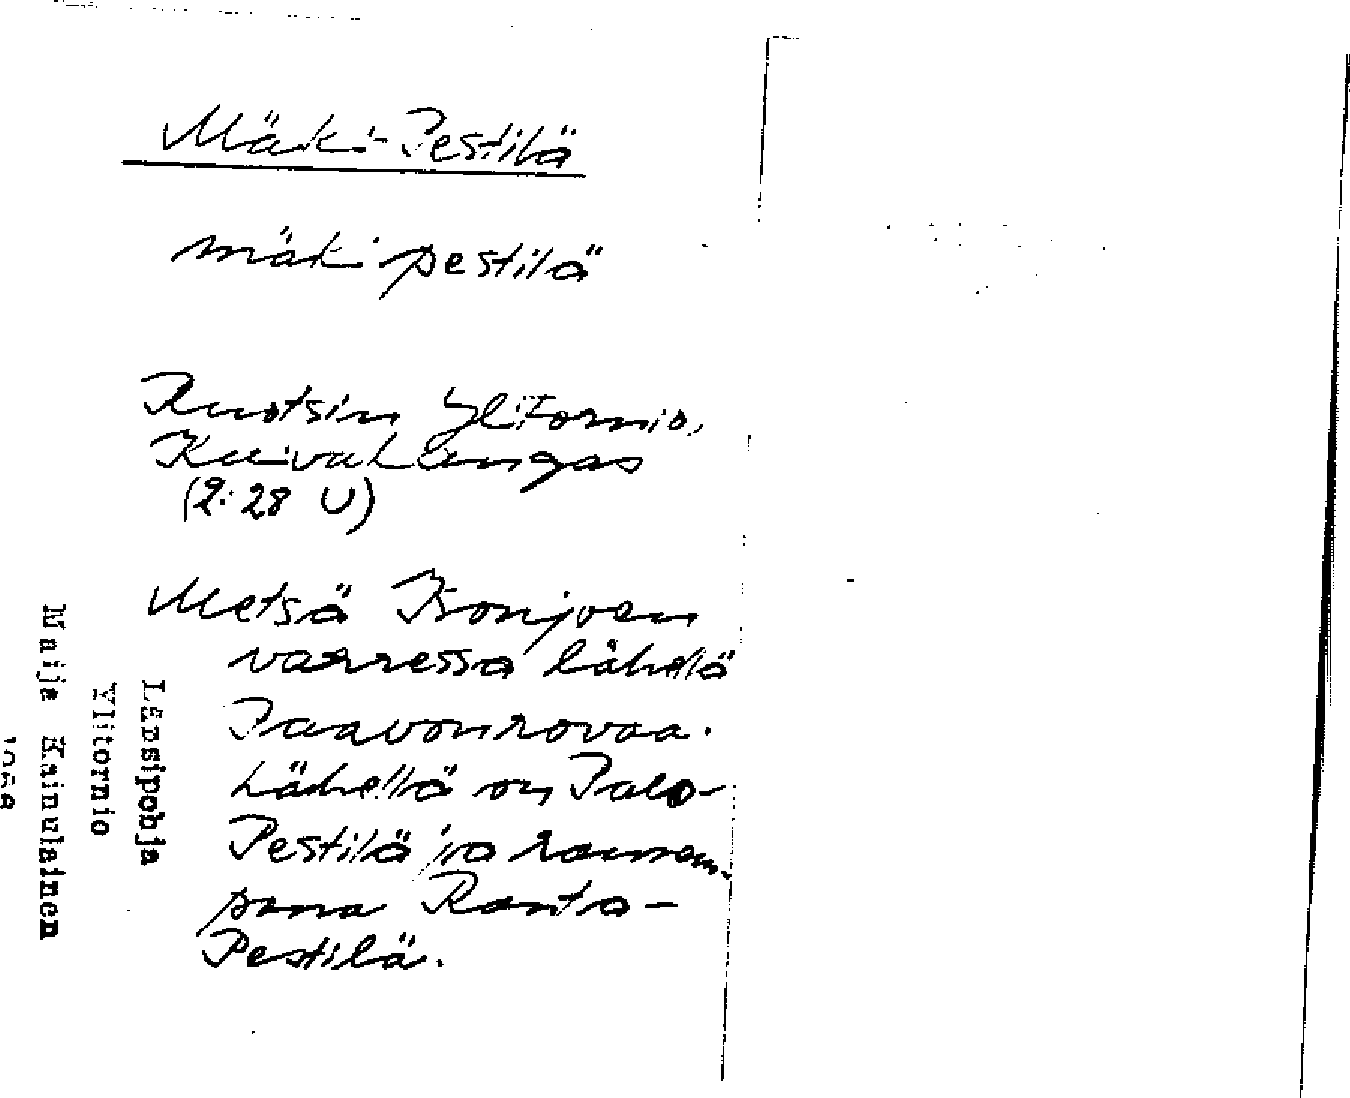 Mäki-Pestilä
mäkipestilä
Ruotsin Ylitornio,
Kuivakangas
(2:28 U)
Metsä Isonjoen
varressa lähellä
Paavonrovaa.
Lähellä on Palo-
Pestilä ja rannem-
pana Ranta-
Pestilä.
Länsipohja
Ylitornio
Maija Kainulainen